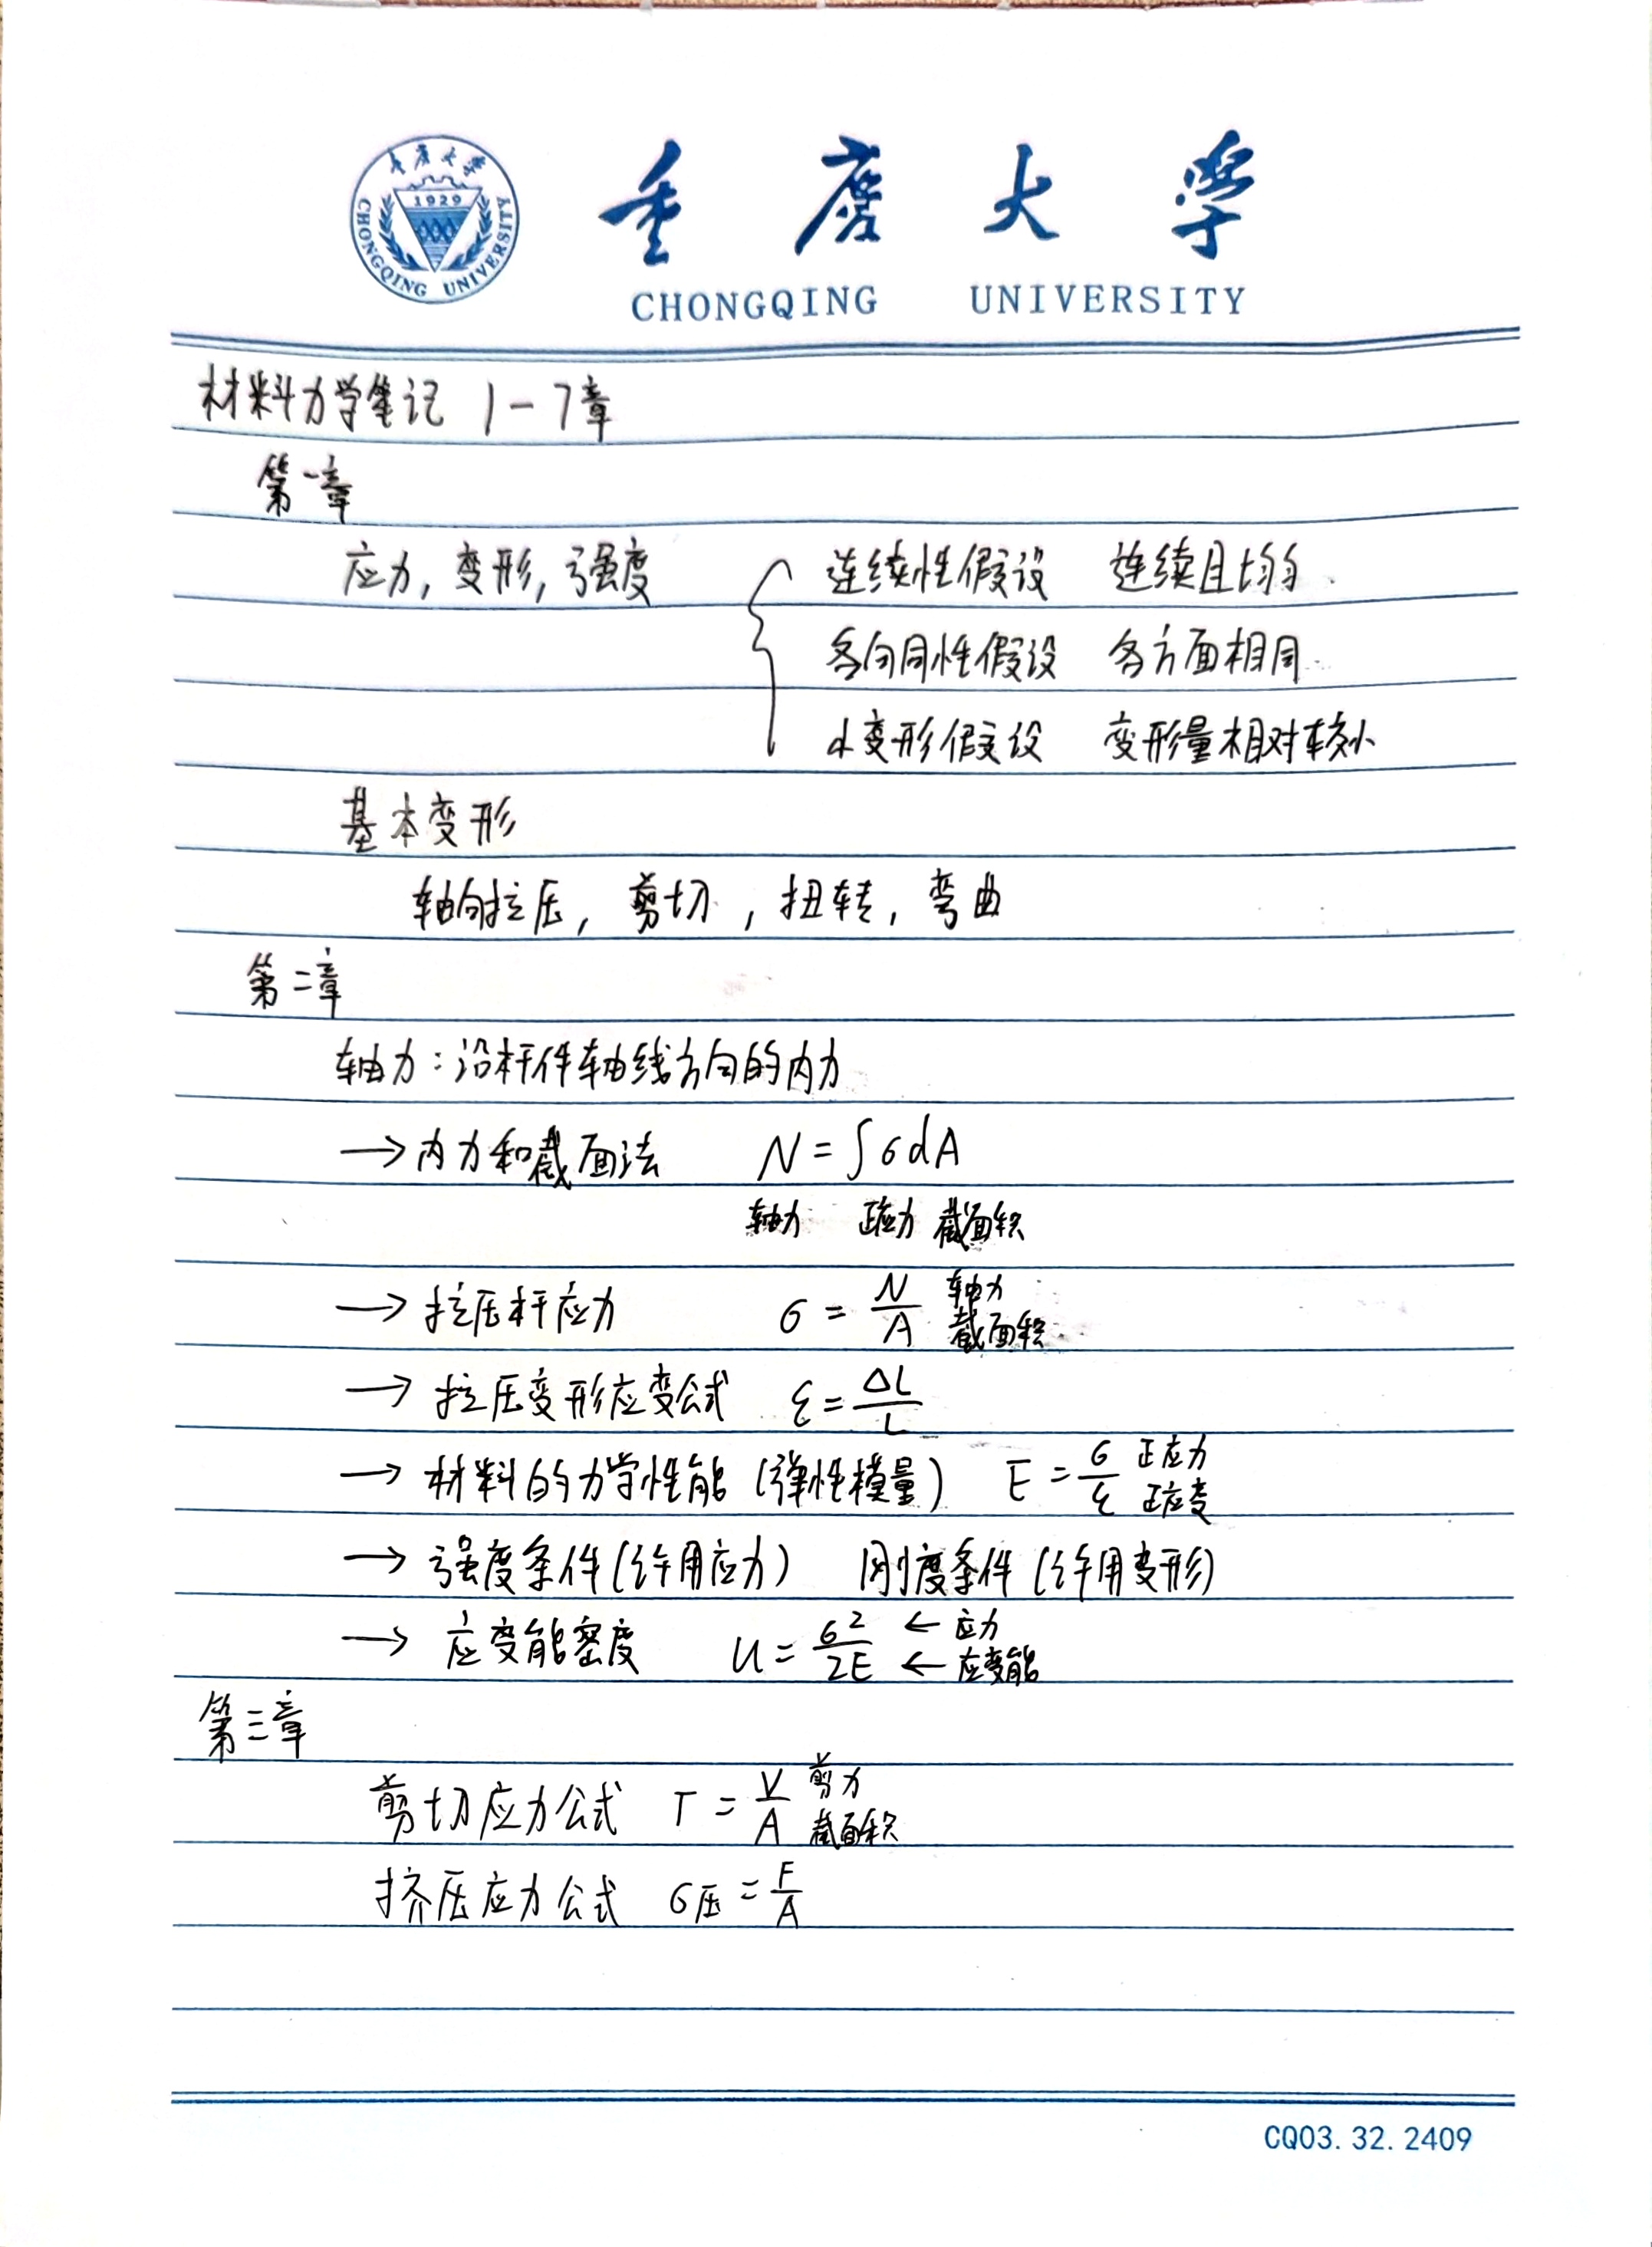 重庆大学
1929
CHONGQING UNIVERSITY
重庆大学
CHONGQING UNIVERSITY
材料力学笔记 1-7章
第一章
应力,变形,强度 连续性假设 连续且均匀.
各向同性假设 各方面相同.
小变形假设 变形量相对较小
基本变形
轴向拉压,剪切,扭转,弯曲
第二章
轴力:沿杆件轴线方向的内力
→内力和截面法 N=∫σdA
轴力 正应力 截面积
→拉压杆应力 σ=N/A 轴力 截面积.
→拉压变形应变公式 ε=ΔL/L
→材料的力学性能(弹性模量) E=σ/ε 正应力 正应变
→强度条件(许用应力) 刚度条件(许用变形)
→应变能密度 u=σ²/2E ←应力 ←应变能
第三章
剪切应力公式 τ=V/A 剪力 截面积
挤压应力公式 σ压=F/A
CQ03.32.2409